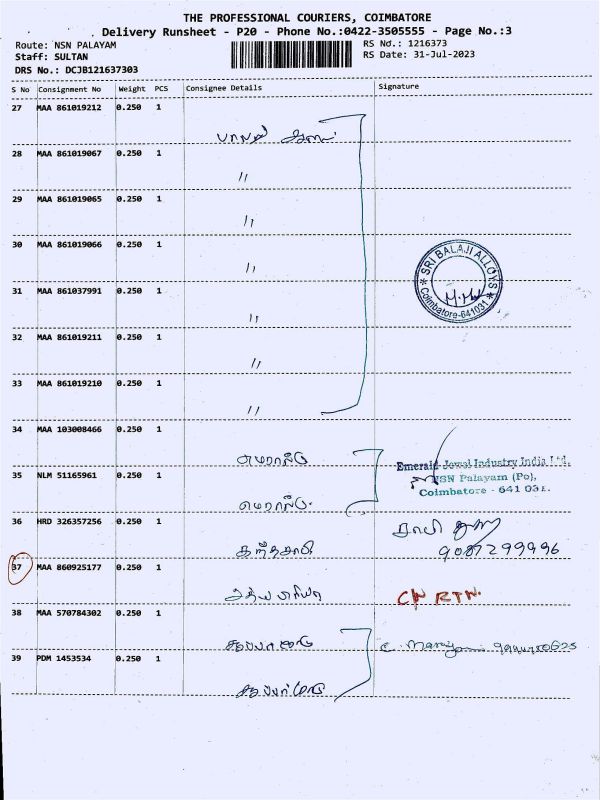 THE PROFESSIONAL COURIERS, COIMBATORE
Delivery Runsheet - P20 - Phone No.:0422-3505555 - Page No.:3
Route: NSN PALAYAM
RS No.: 1216373
Staff: SULTAN
RS Date: 31-Jul-2023
DRS No.: DCJB121637303
S No Consignment No Weight PCS Consignee Details Signature
27 MAA 861019212 0.250 1
பாலாஜி
28 MAA 861019067 0.250 1
"
29 MAA 861019065 0.250 1
"
30 MAA 861019066 0.250 1
"
* SRI BALAJI ALLOYS *
Coimbatore-641031
31 MAA 861037991 0.250 1
"
32 MAA 861019211 0.250 1
"
33 MAA 861019210 0.250 1
"
34 MAA 103008466 0.250 1
எமரால்டு
Emerald Jewel Industry India Ltd.
NSN Palayam (Po),
Coimbatore - 641 031.
35 NLM 51165961 0.250 1
எமரால்டு
36 HRD 326357256 0.250 1
9087299996
37 MAA 860925177 0.250 1
CN RTN.
38 MAA 570784302 0.250 1
39 PDM 1453534 0.250 1